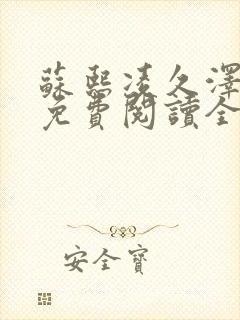 蘇熙凌久澤
免費閱讀全
安全寶